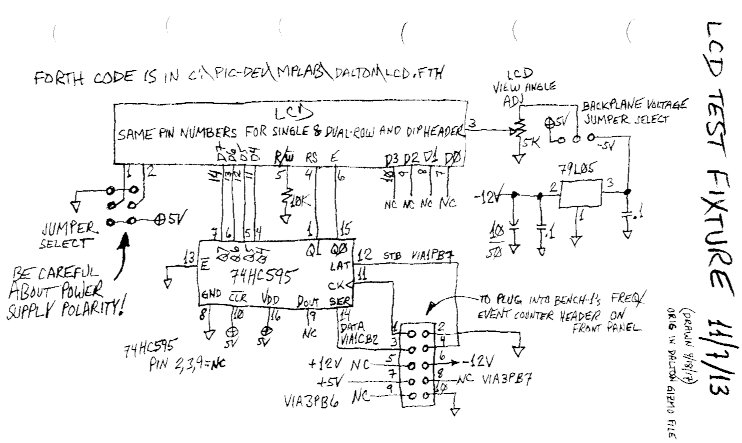 FORTH CODE IS IN C:\PIC-DEV\MPLAB\DALTON\LCD.FTH
LCD
VIEW ANGLE
ADJ
BACKPLANE VOLTAGE
JUMPER SELECT
LCD
SAME PIN NUMBERS FOR SINGLE & DUAL-ROW AND DIP HEADER
3
5K
5V
-5V
1 2
D7 D6 D5 D4 R/W RS E D3 D2 D1 D0
14 13 12 11 5 4 6 10 9 8 7
NC NC NC NC
10K
79L05
-12V
2 3
1
10
50
.1
.1
JUMPER
SELECT
5V
BE CAREFUL
ABOUT POWER
SUPPLY POLARITY!
7 6 5 4 1 15
Q7 Q6 Q5 Q4 Q1 Q0
13
E
74HC595
LAT
CK
12 STB VIA1PB7
11
GND CLR VDD DOUT SER
8 10 16 9 14
5V 5V NC
DATA
VIA1CB2
TO PLUG INTO BENCH-1'S FREQ/
EVENT COUNTER HEADER ON
FRONT PANEL
74HC595
PIN 2,3,9=NC
1 2
3 4
+12V NC 5 6 -12V
+5V 7 8 NC VIA3PB7
VIA3PB6 NC 9 10
LCD TEST FIXTURE 11/7/13
ORIG IN DALTON GIZMO FILE